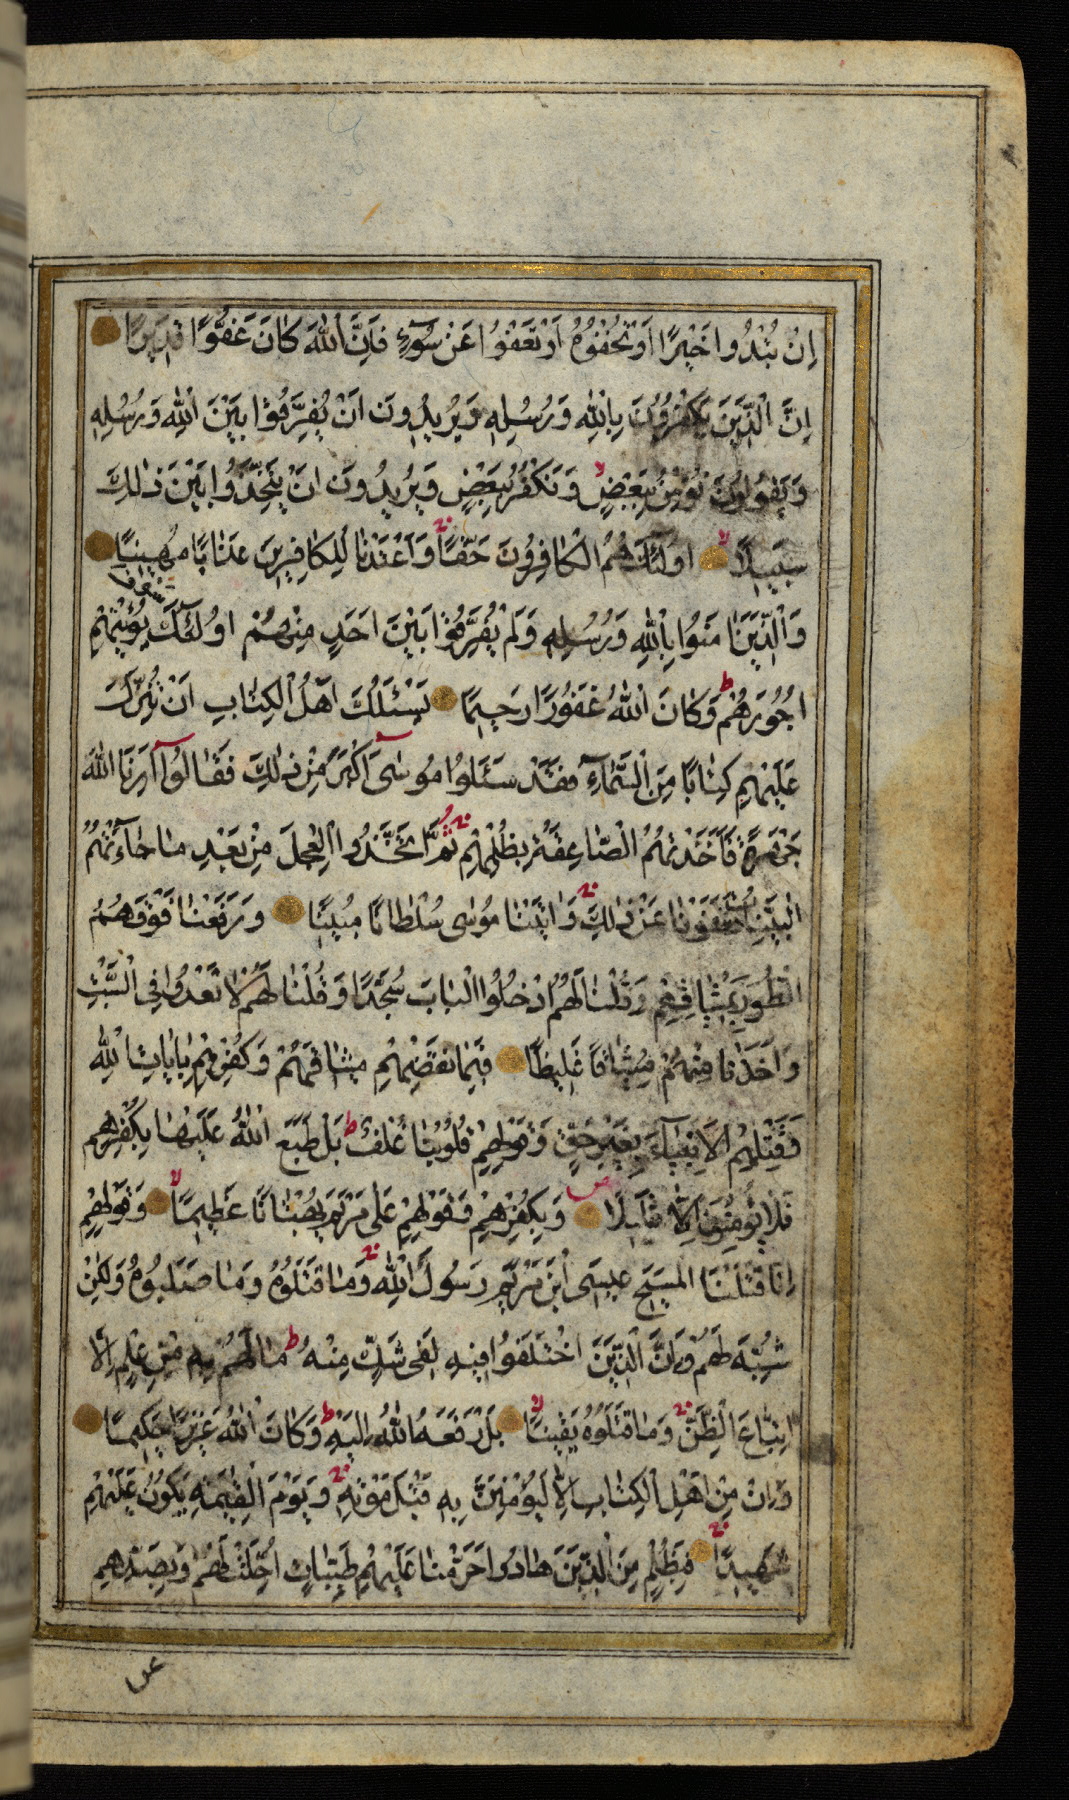 اِنْ تُبْدُوا خَيْرًا اَوْ تُخْفُوهُ اَوْ تَعْفُوْا عَنْ سُوٓءٍ فَاِنَّ اللّٰهَ كَانَ عَفُوًّا قَدِيرًا
اِنَّ الَّذِينَ يَكْفُرُونَ بِاللّٰهِ وَرُسُلِهِ وَيُرِيدُونَ اَنْ يُفَرِّقُوا بَيْنَ اللّٰهِ وَرُسُلِهِ
وَيَقُولُونَ نُؤْمِنُ بِبَعْضٍ وَنَكْفُرُ بِبَعْضٍ وَيُرِيدُونَ اَنْ يَتَّخِذُوا بَيْنَ ذٰلِكَ
سَبِيلًا اُولٰٓئِكَ هُمُ الْكَافِرُونَ حَقًّا وَاَعْتَدْنَا لِلْكَافِرِينَ عَذَابًا مُهِينًا
وَالَّذِينَ اٰمَنُوا بِاللّٰهِ وَرُسُلِهِ وَلَمْ يُفَرِّقُوا بَيْنَ اَحَدٍ مِنْهُمْ اُولٰٓئِكَ سَوْفَ يُؤْتِيهِمْ
اُجُورَهُمْ وَكَانَ اللّٰهُ غَفُورًا رَحِيمًا يَسْئَلُكَ اَهْلُ الْكِتَابِ اَنْ تُنَزِّلَ
عَلَيْهِمْ كِتَابًا مِنَ السَّمَآءِ فَقَدْ سَئَلُوا مُوسٰٓى اَكْبَرَ مِنْ ذٰلِكَ فَقَالُوٓا اَرِنَا اللّٰهَ
جَهْرَةً فَاَخَذَتْهُمُ الصَّاعِقَةُ بِظُلْمِهِمْ ثُمَّ اتَّخَذُوا الْعِجْلَ مِنْ بَعْدِ مَا جَآءَتْهُمُ
الْبَيِّنَاتُ فَعَفَوْنَا عَنْ ذٰلِكَ وَاٰتَيْنَا مُوسٰى سُلْطَانًا مُبِينًا وَرَفَعْنَا فَوْقَهُمُ
الطُّورَ بِمِيثَاقِهِمْ وَقُلْنَا لَهُمُ ادْخُلُوا الْبَابَ سُجَّدًا وَقُلْنَا لَهُمْ لَا تَعْدُوا فِى السَّبْتِ
وَاَخَذْنَا مِنْهُمْ مِيثَاقًا غَلِيظًا فَبِمَا نَقْضِهِمْ مِيثَاقَهُمْ وَكُفْرِهِمْ بِاٰيَاتِ اللّٰهِ
وَقَتْلِهِمُ الْاَنْبِيَآءَ بِغَيْرِ حَقٍّ وَقَوْلِهِمْ قُلُوبُنَا غُلْفٌ بَلْ طَبَعَ اللّٰهُ عَلَيْهَا بِكُفْرِهِمْ
فَلَا يُؤْمِنُونَ اِلَّا قَلِيلًا وَبِكُفْرِهِمْ وَقَوْلِهِمْ عَلٰى مَرْيَمَ بُهْتَانًا عَظِيمًا وَقَوْلِهِمْ
اِنَّا قَتَلْنَا الْمَسِيحَ عِيسَى ابْنَ مَرْيَمَ رَسُولَ اللّٰهِ وَمَا قَتَلُوهُ وَمَا صَلَبُوهُ وَلٰكِنْ
شُبِّهَ لَهُمْ وَاِنَّ الَّذِينَ اخْتَلَفُوا فِيهِ لَفِى شَكٍّ مِنْهُ مَا لَهُمْ بِهِ مِنْ عِلْمٍ اِلَّا
اتِّبَاعَ الظَّنِّ وَمَا قَتَلُوهُ يَقِينًا بَلْ رَفَعَهُ اللّٰهُ اِلَيْهِ وَكَانَ اللّٰهُ عَزِيزًا حَكِيمًا
وَاِنْ مِنْ اَهْلِ الْكِتَابِ اِلَّا لَيُؤْمِنَنَّ بِهِ قَبْلَ مَوْتِهِ وَيَوْمَ الْقِيٰمَةِ يَكُونُ عَلَيْهِمْ
شَهِيدًا فَبِظُلْمٍ مِنَ الَّذِينَ هَادُوا حَرَّمْنَا عَلَيْهِمْ طَيِّبَاتٍ اُحِلَّتْ لَهُمْ وَبِصَدِّهِمْ
عن